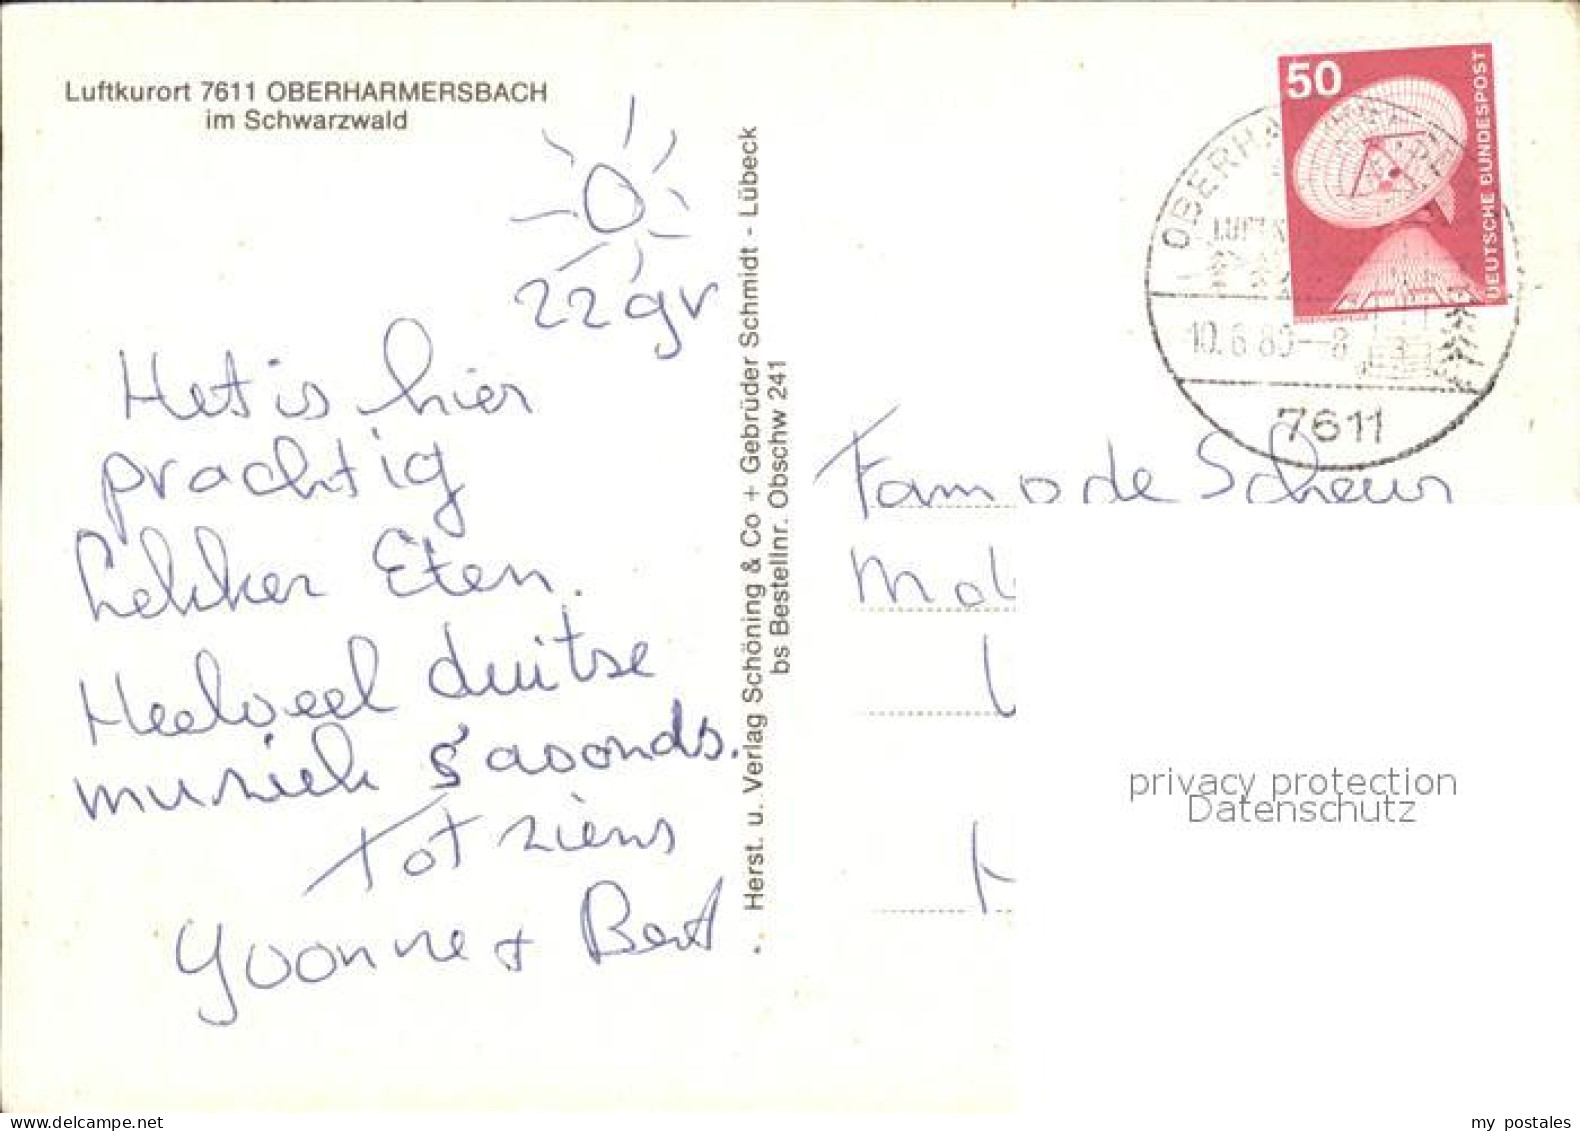 Luftkurort 7611 OBERHARMERSBACH
im Schwarzwald
22 gr
Het is hier
prachtig
Lekker Eten.
Heelveel duitse
muziek s'avonds.
Tot ziens
Yvonne + Bert.
Herst. u. Verlag Schöning & Co + Gebrüder Schmidt - Lübeck
bs Bestellnr. Obschw 241
50
DEUTSCHE BUNDESPOST
10.6.80--8
7611
Fam de Scheur
privacy protection
Datenschutz
www.delcampe.net
my postales